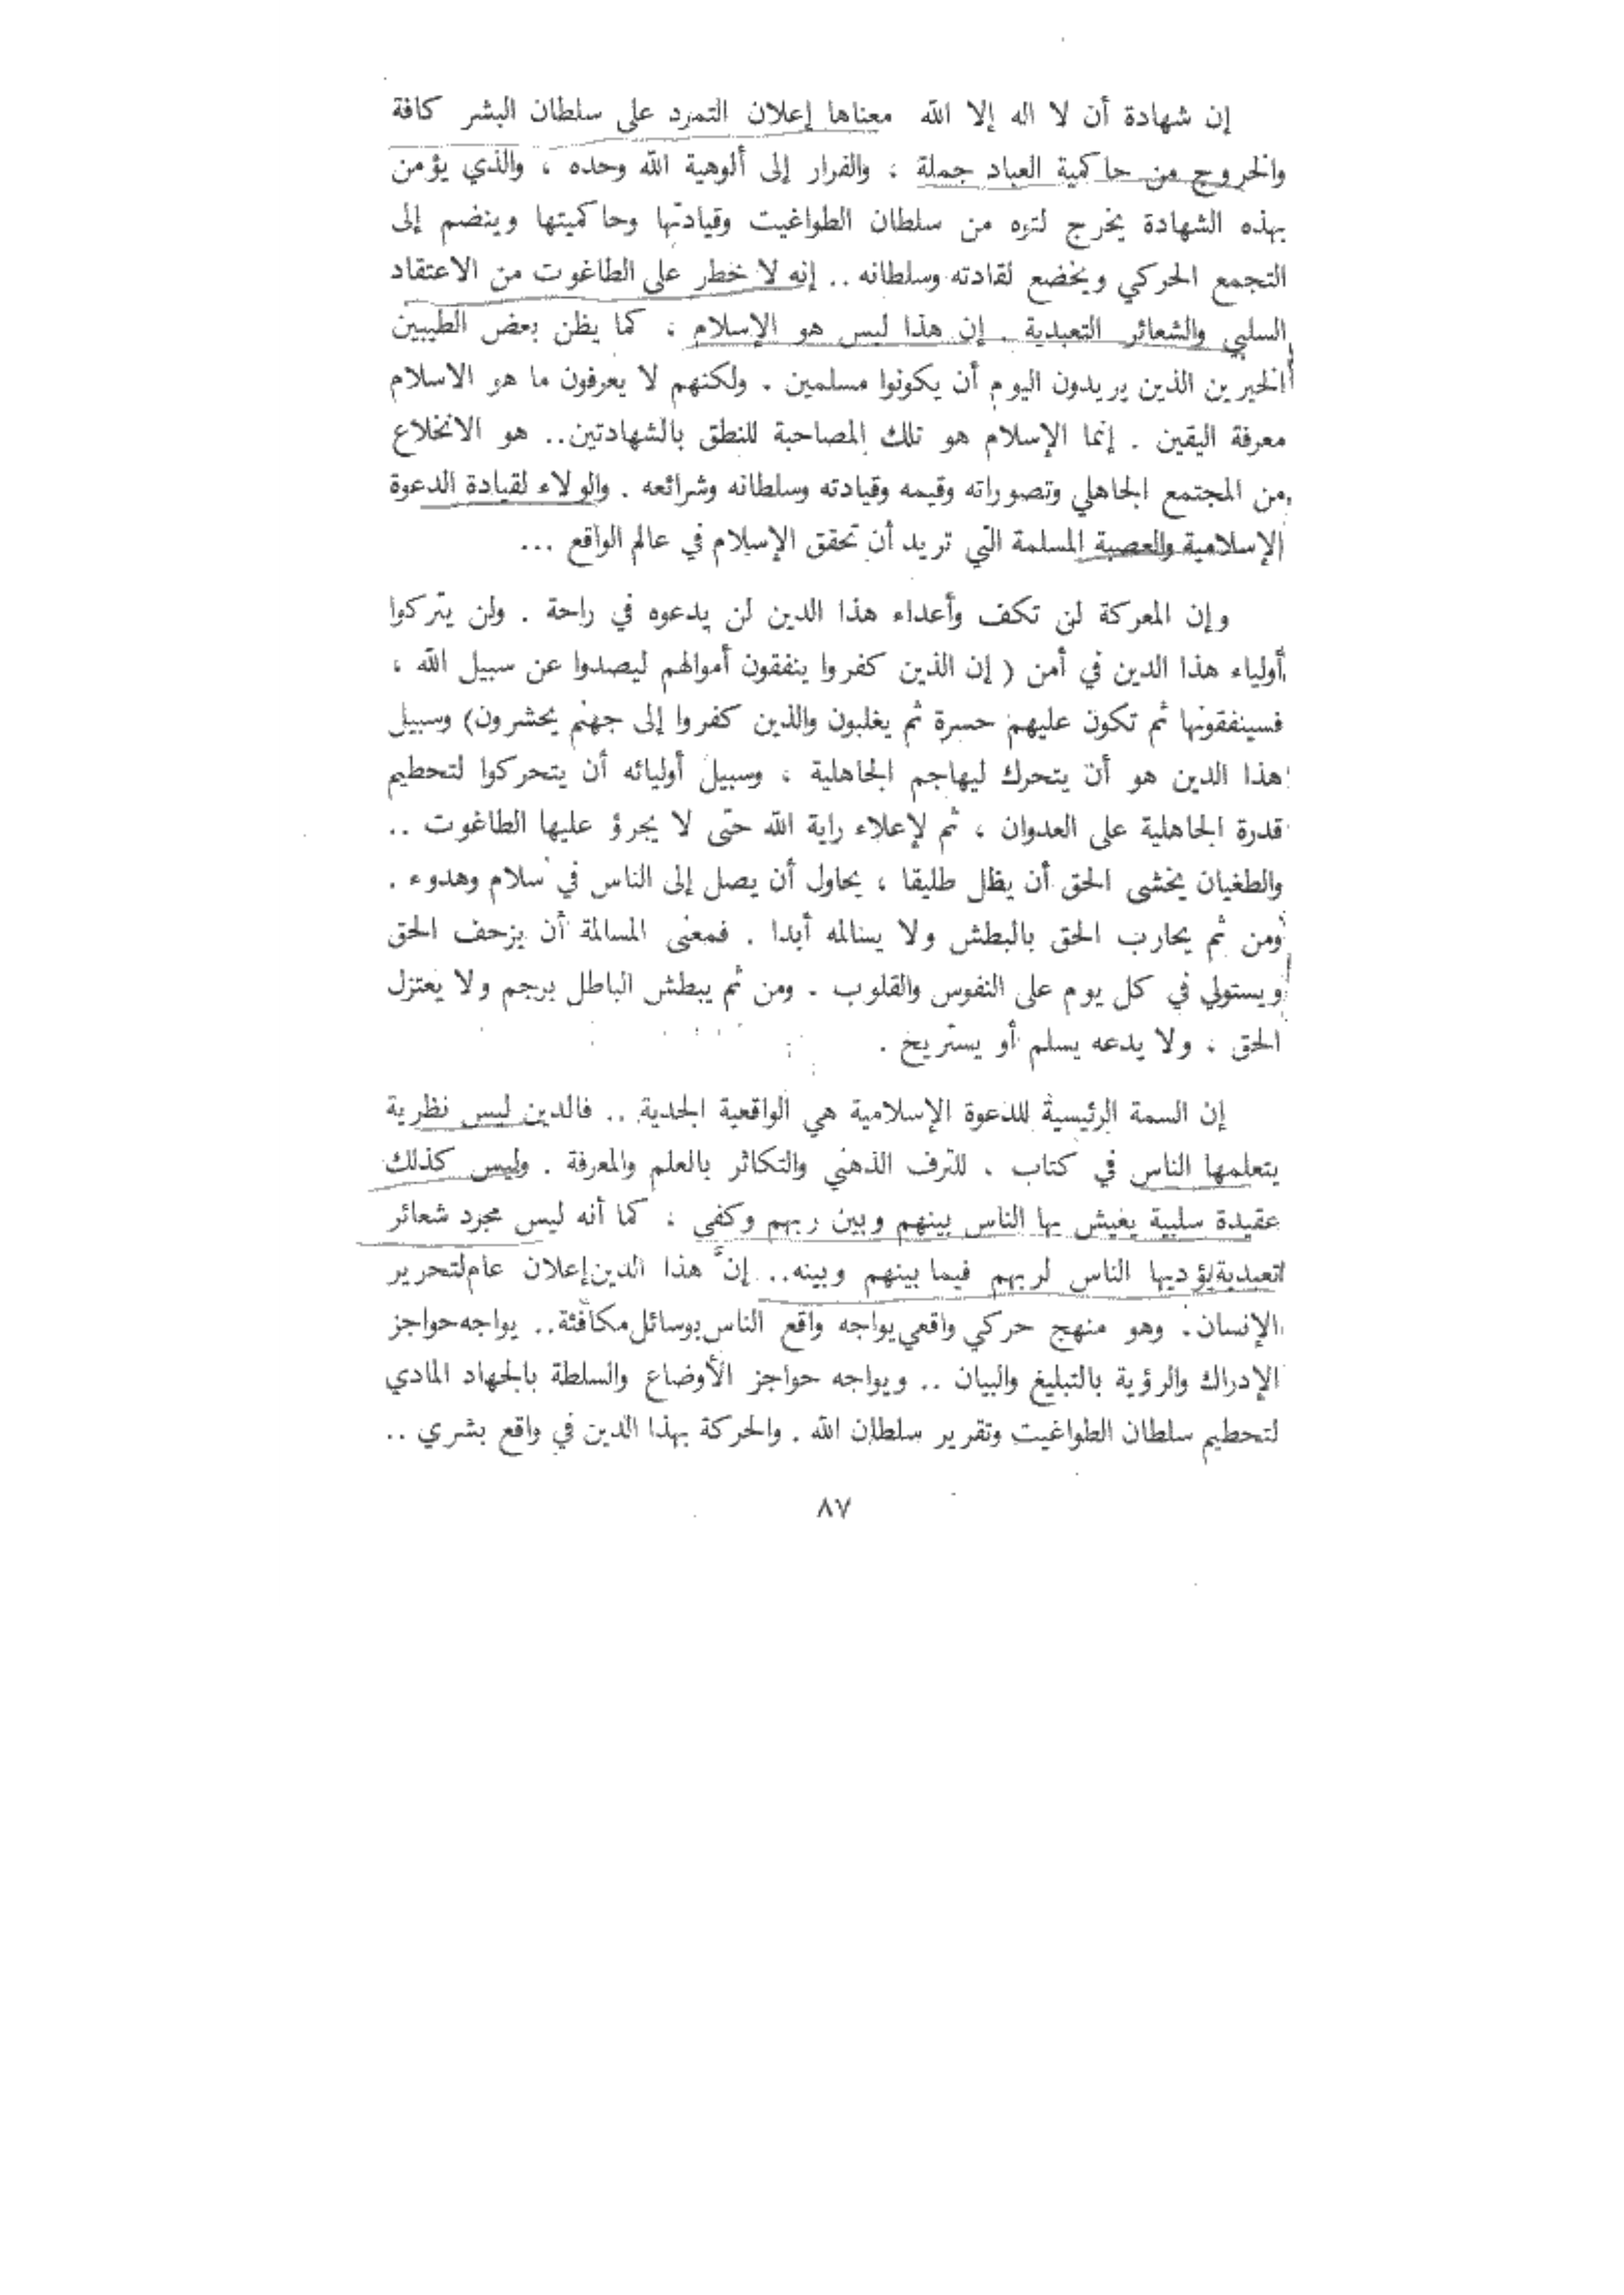 إن شهادة أن لا اله إلا الله معناها إعلان التمرد على سلطان البشر كافة
والخروج من حاكمية العباد جملة ، والفرار إلى ألوهية الله وحده ، والذي يؤمن
بهذه الشهادة يخرج لتوه من سلطان الطواغيت وقيادتها وحاكميتها وينضم إلى
التجمع الحركي ويخضع لقادته وسلطانه .. إنه لا خطر على الطاغوت من الاعتقاد
السلبي والشعائر التعبدية . إن هذا ليس هو الإسلام ، كما يظن بعض الطيبين
الخيرين الذين يريدون اليوم أن يكونوا مسلمين . ولكنهم لا يعرفون ما هو الاسلام
معرفة اليقين . إنما الإسلام هو تلك المصاحبة للنطق بالشهادتين.. هو الانخلاع
من المجتمع الجاهلي وتصوراته وقيمه وقيادته وسلطانه وشرائعه . والولاء لقيادة الدعوة
الإسلامية والعصبة المسلمة التي تريد أن تحقق الإسلام في عالم الواقع ...
وإن المعركة لن تكف وأعداء هذا الدين لن يدعوه في راحة . ولن يتركوا
أولياء هذا الدين في أمن ( إن الذين كفروا ينفقون أموالهم ليصدوا عن سبيل الله ،
فسينفقونها ثم تكون عليهم حسرة ثم يغلبون والذين كفروا إلى جهنم يحشرون) وسبيل
هذا الدين هو أن يتحرك ليهاجم الجاهلية ، وسبيل أوليائه أن يتحركوا لتحطيم
قدرة الجاهلية على العدوان ، ثم لإعلاء راية الله حتى لا يجرؤ عليها الطاغوت ..
والطغيان يخشى الحق أن يظل طليقا ، يحاول أن يصل إلى الناس في سلام وهدوء .
ومن ثم يحارب الحق بالبطش ولا يسالمه أبدا . فمعنى المسالمة أن يزحف الحق
ويستولي في كل يوم على النفوس والقلوب . ومن ثم يبطش الباطل يرجم ولا يعتزل
الحق ، ولا يدعه يسلم أو يستريح .
إن السمة الرئيسية للدعوة الإسلامية هي الواقعية الجدية .. فالدين ليس نظرية
يتعلمها الناس في كتاب . للترف الذهني والتكاثر بالعلم والمعرفة . وليس كذلك
عقيدة سلبية يعيش بها الناس بينهم وبين ربهم وكفى ، كما أنه ليس مجرد شعائر
تعبدية يؤديها الناس لربهم فيما بينهم وبينه.. إنَّ هذا الدين إعلان عام لتحرير
الإنسان . وهو منهج حركي واقعي يواجه واقع الناس بوسائل مكافئة.. يواجه حواجز
الإدراك والرؤية بالتبليغ والبيان .. ويواجه حواجز الأوضاع والسلطة بالجهاد المادي
لتحطيم سلطان الطواغيت وتقرير سلطان الله . والحركة بهذا الدين في واقع بشري ..
٨٧